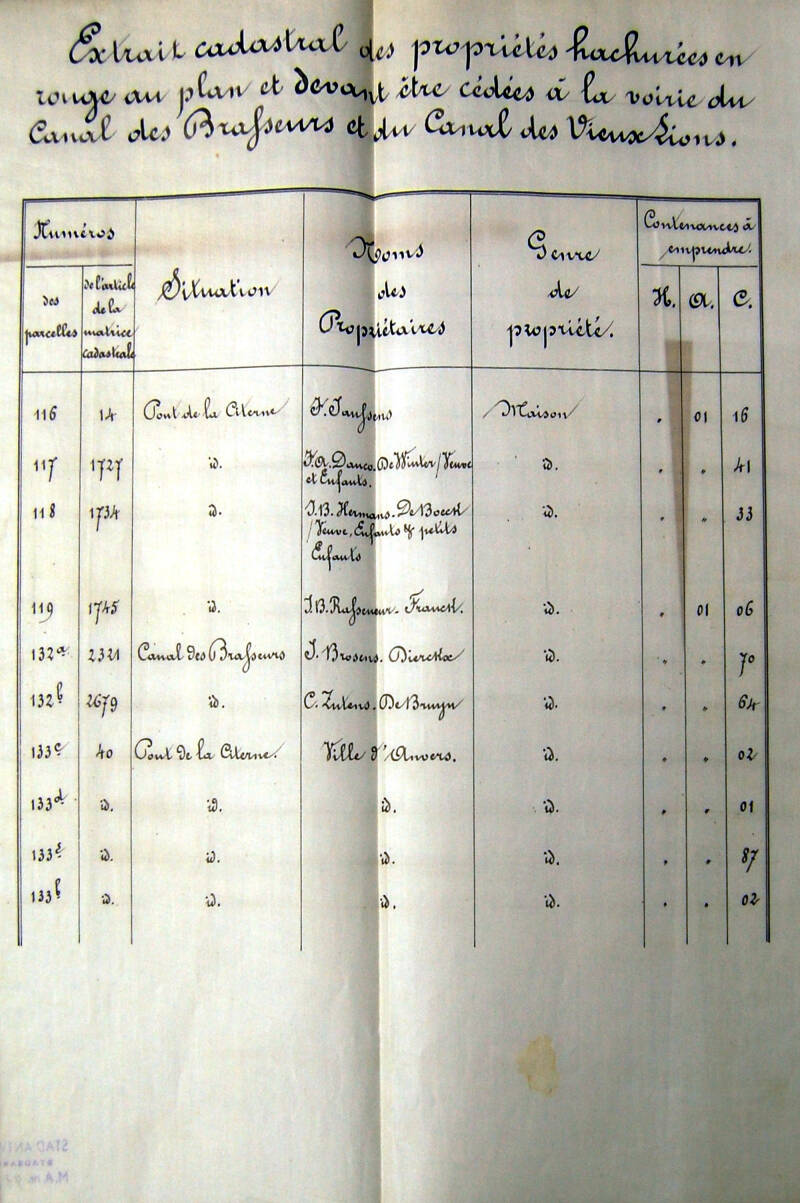 Extrait cadastral des propriétés hachurées en
rouge au plan et devant être cédées à la voirie du
Canal des Brasseurs et du Canal des Vieux Lions.
Numéros
Contenances à
emprendre.
des
parcelles
de l'article
de la
matrice
cadastrale
Situation
Noms
des
Propriétaires
Genre
de
propriété.
H. A. C.
116 14 Pont de la Citerne F. Janssens Maison " 01 16
117 1727 id. F. A. Danco. De Winter / Veuve id. " " 41
et Enfants.
118 1734 id. J. B. Hermans. De Boeck id. " " 33
/ Veuve, Enfants & petits
Enfants
119 1745 id. J. B. Rasseneur. Franck. id. " 01 06
132a 2321 Canal des Brasseurs J. Brosens. Dierckx id. " " 70
132b 2679 id. C. Zutens. De Bruyn id. " " 64
133c 40 Pont de la Citerne. Ville d'Anvers. id. " " 02
133d id. id. id. id. " " 01
133e id. id. id. id. " " 87
133f id. id. id. id. " " 02